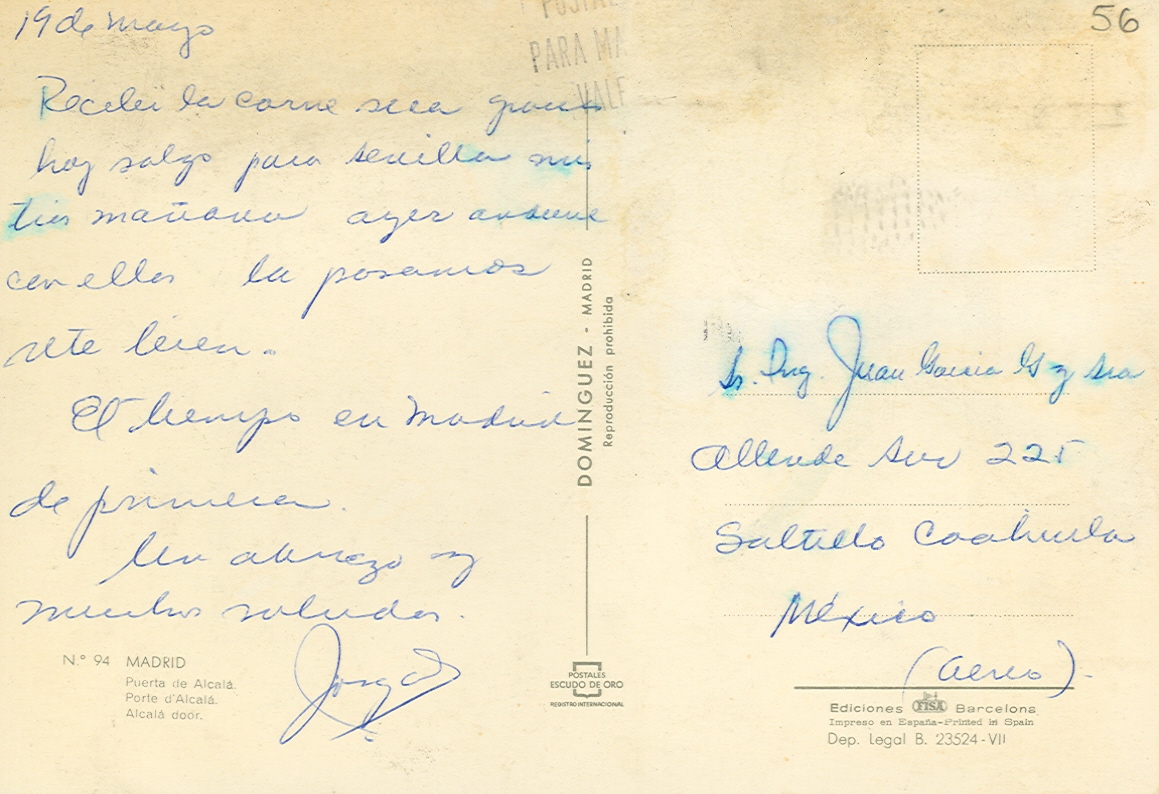 19 de mayo
Recibi la carne seca gracias
hoy salgo para Sevilla mis
tios mañana ayer anduve
con ellos la pasamos
rete bien.
El tiempo en Madrid
de primera.
Un abrazo y
muchos saludos.
Jorge
N.° 94 MADRID
Puerta de Alcalá.
Porte d'Alcalá.
Alcalá door.
POSTAL
PARA MA
VALE
DOMINGUEZ - MADRID
Reproducción prohibida
POSTALES
ESCUDO DE ORO
REGISTRO INTERNACIONAL
56
Sr. Ing. Juan Garcia G y Sra
Allende Sur 225
Saltillo Coahuila
México
(aereo).
Ediciones FISA Barcelona
Impreso en España-Printed in Spain
Dep. Legal B. 23524-VII